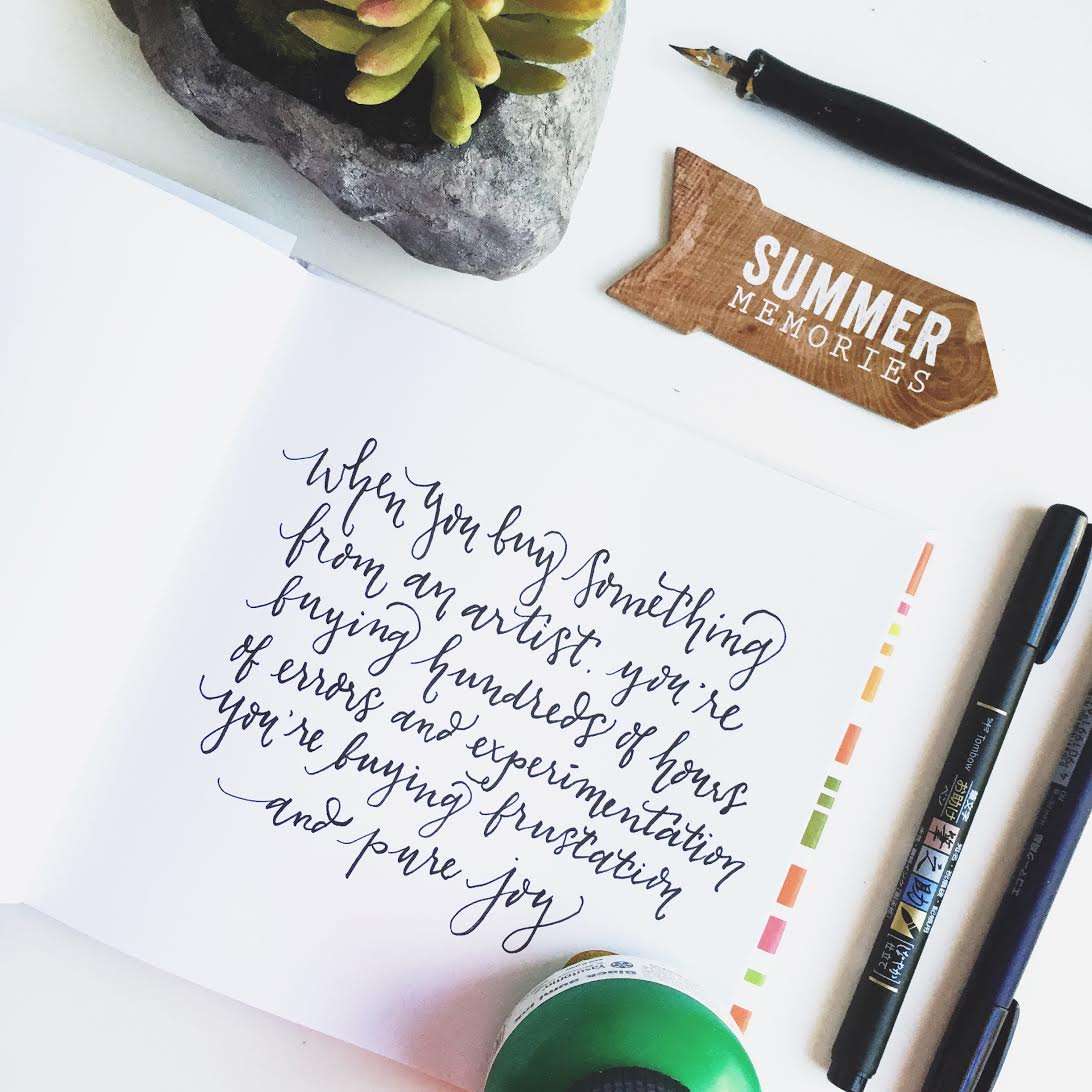 SUMMER
MEMORIES
when you buy something
from an artist. you're
buying hundreds of hours
of errors and experimentation
you're buying frustation
and pure joy
Tombow
筆文字
お助け
ペン
筆之助
Black Sumi Ink
Yasutomo